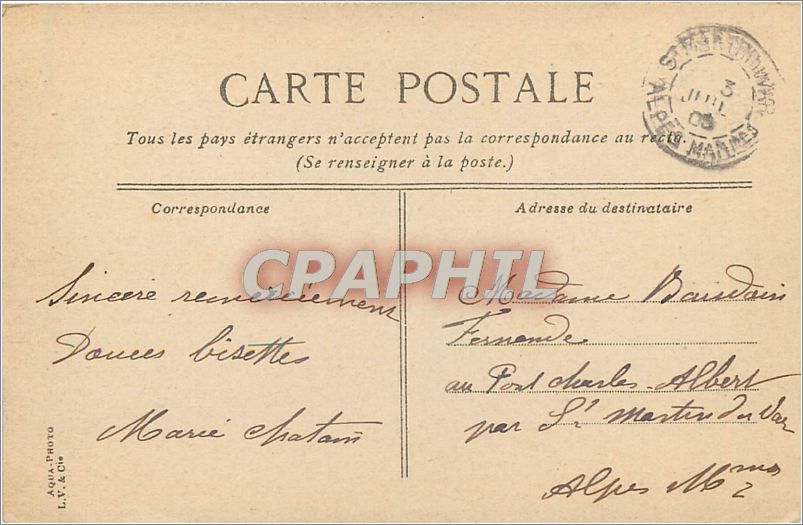 CARTE POSTALE
Tous les pays étrangers n'acceptent pas la correspondance au recto.
(Se renseigner à la poste.)
Correspondance
Sincère remerciement
Douces bisettes
Marie Chatain
Adresse du destinataire
Madame Baudoin
Fernande
au Pont Charles-Albert
par St Martin du Var
Alpes Mmes
ST MARTIN DU VAR
3
JUIL
05
ALPES MARMES
AQUA-PHOTO
L.V. & Cie
CPAPHIL